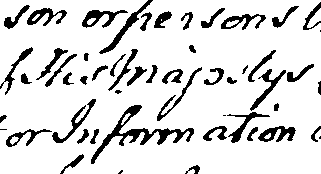 son or persons
His Majestys
or Information